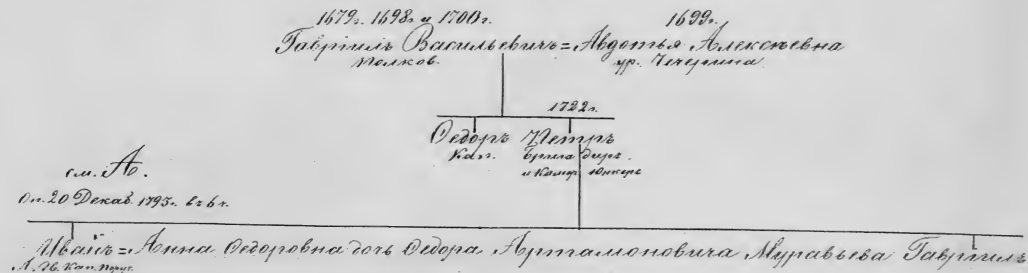 1679г. 1698г. и 1700г. 1699г.
Гавріилъ Васильевичъ = Авдотья Алексѣевна
Полков. ур. Чечерина
1722г.
Ѳедоръ Петръ
Кап. Бригадиръ
и Камер Юнкеръ
см. А.
Оп. 20 Декаб. 1795г.
Иванъ = Анна Ѳедоровна дочь Ѳедора Артамоновича Муравьева Гавріилъ
Л. Гв. Кап. Поруч.